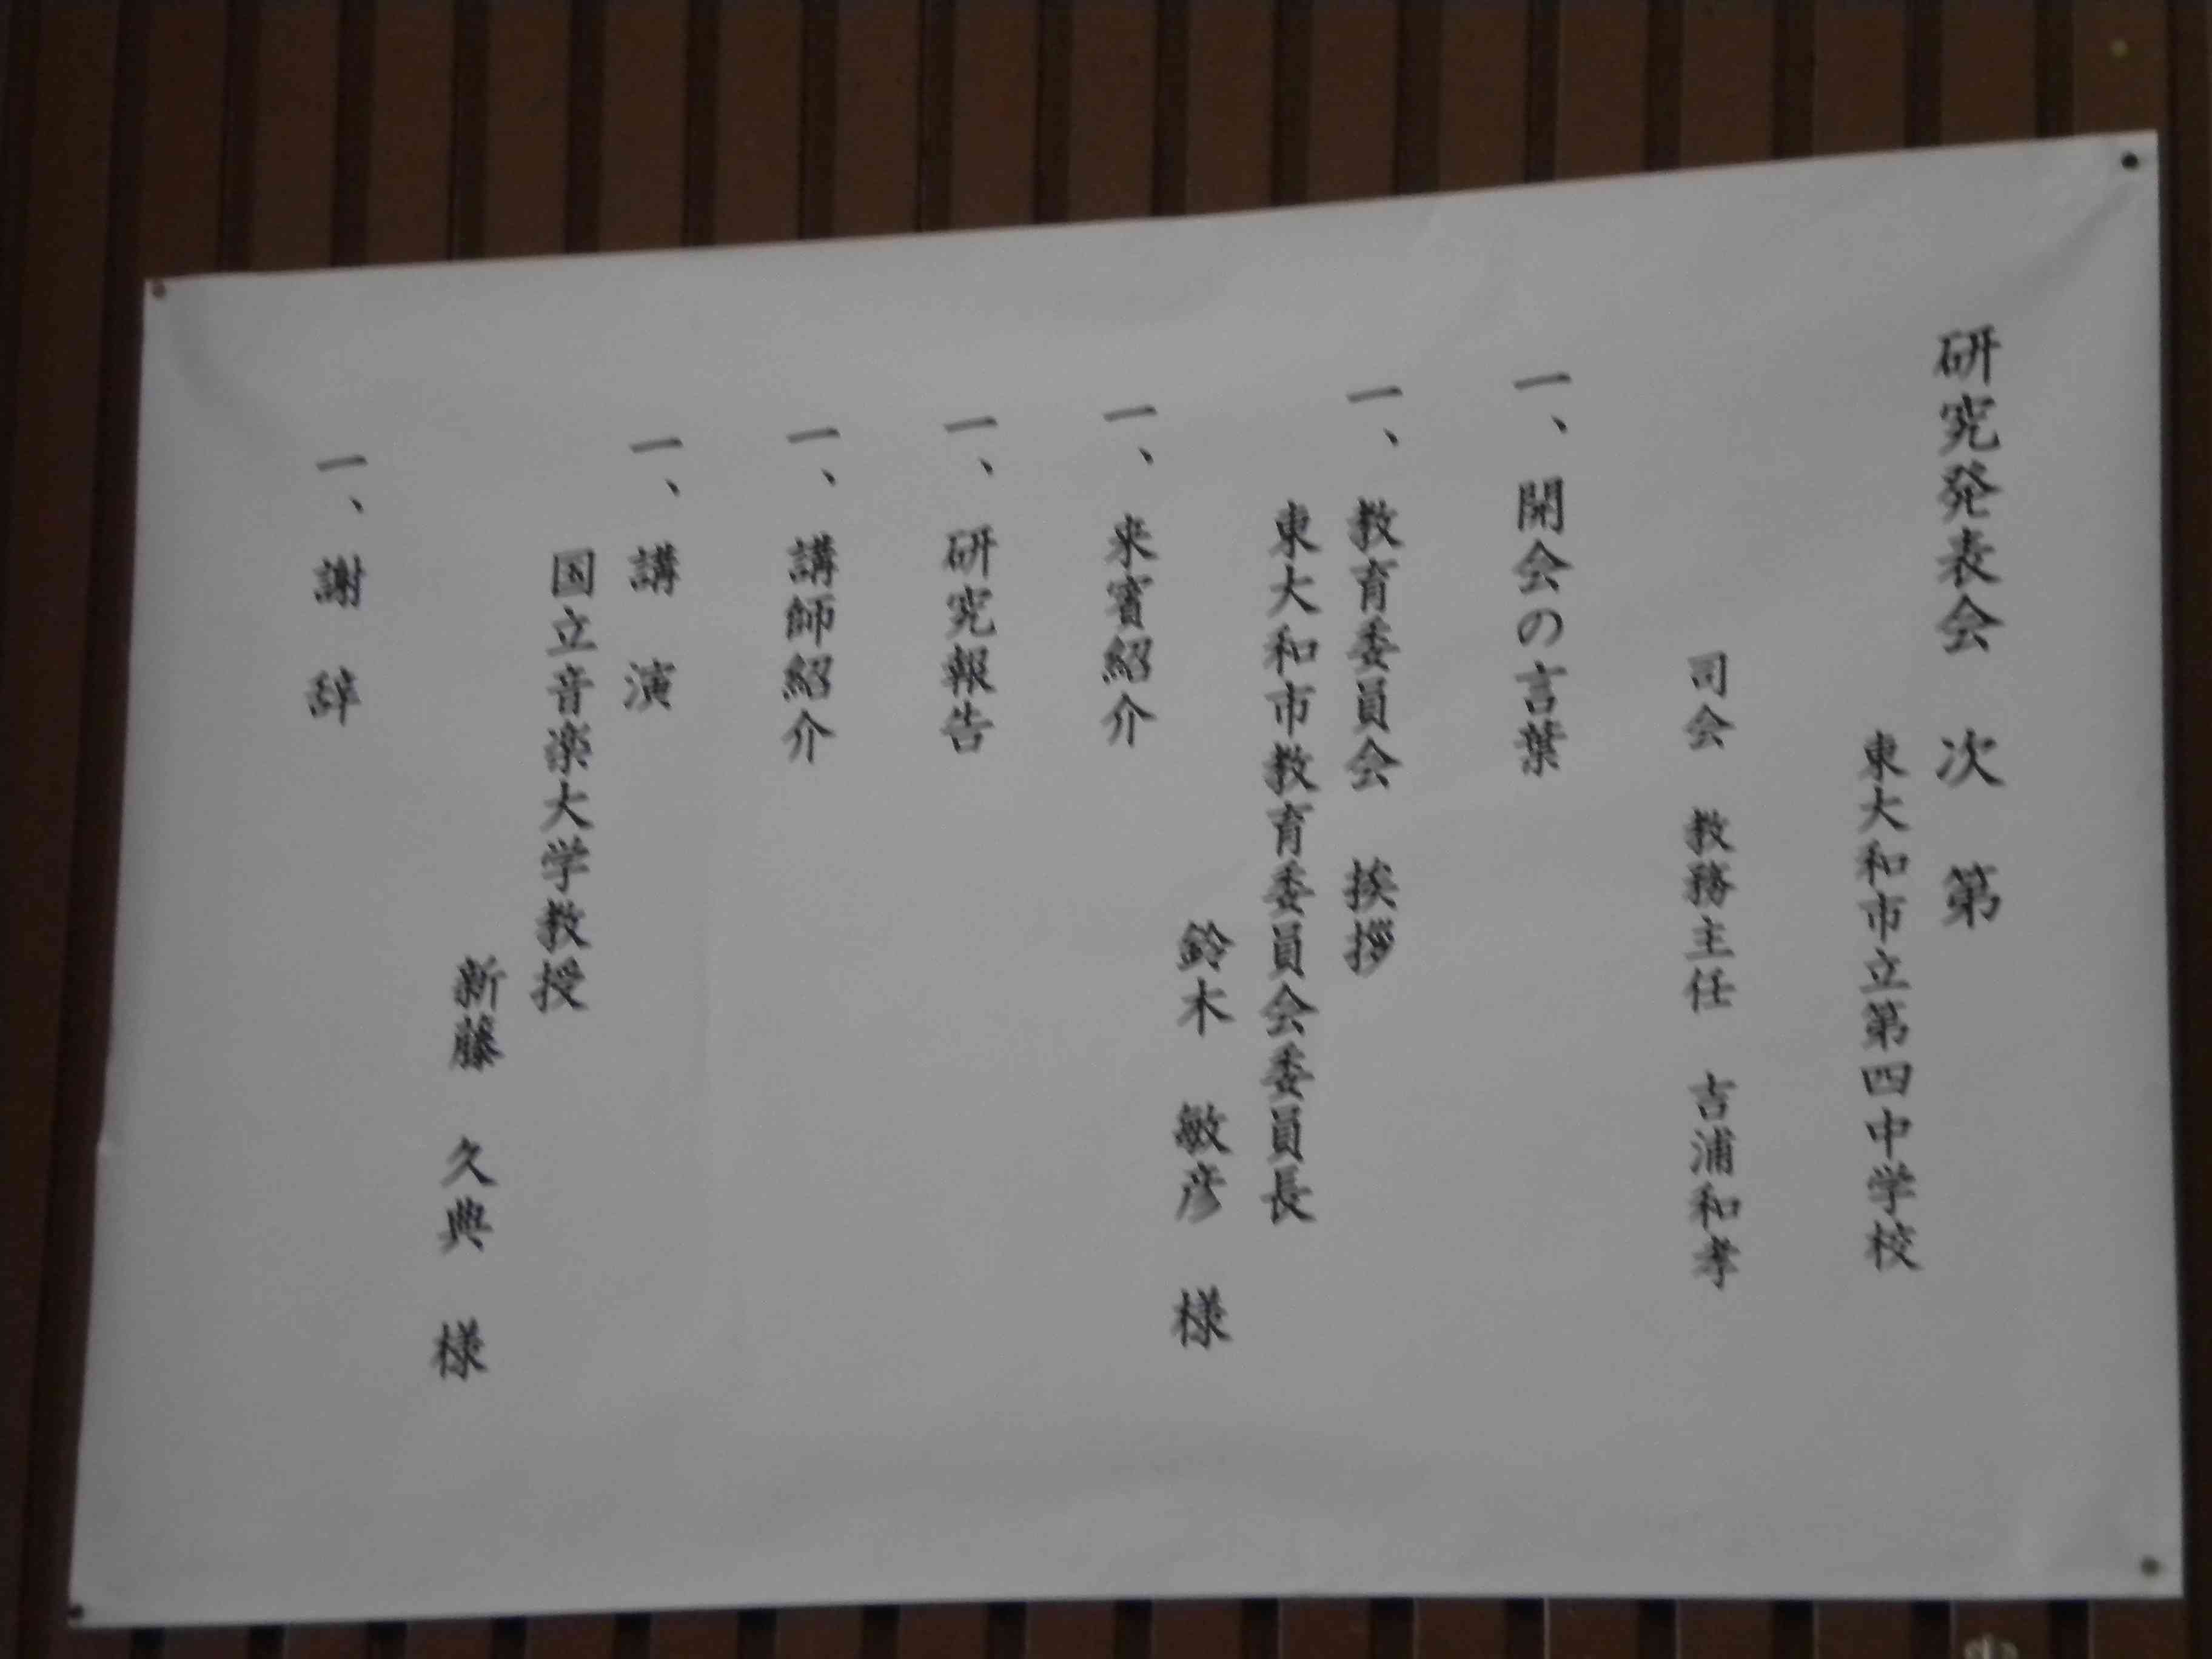 研究発表会　次　第
東大和市立第四中学校
司会　教務主任　吉浦和孝
一、開会の言葉
一、教育委員会　挨拶
東大和市教育委員会委員長
鈴木　敏彦　様
一、来賓紹介
一、研究報告
一、講師紹介
一、講　演
国立音楽大学教授
新藤　久典　様
一、謝　辞